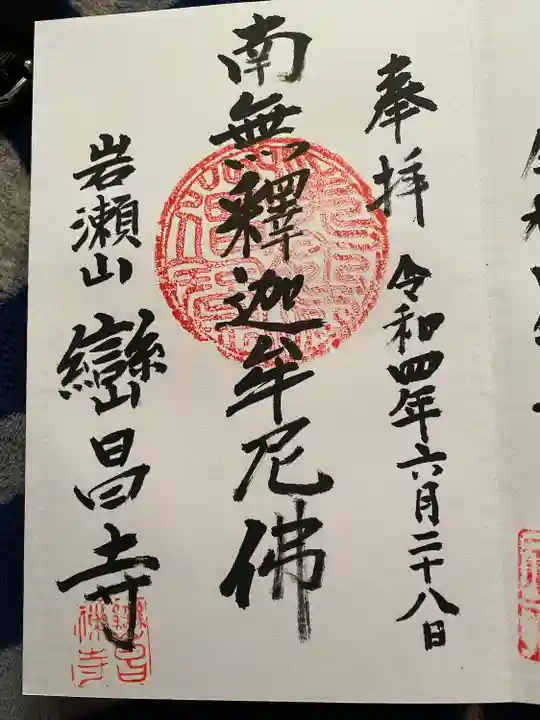 奉拝 令和四年六月二十八日
南無釋迦牟尼佛
岩瀬山 巒昌寺